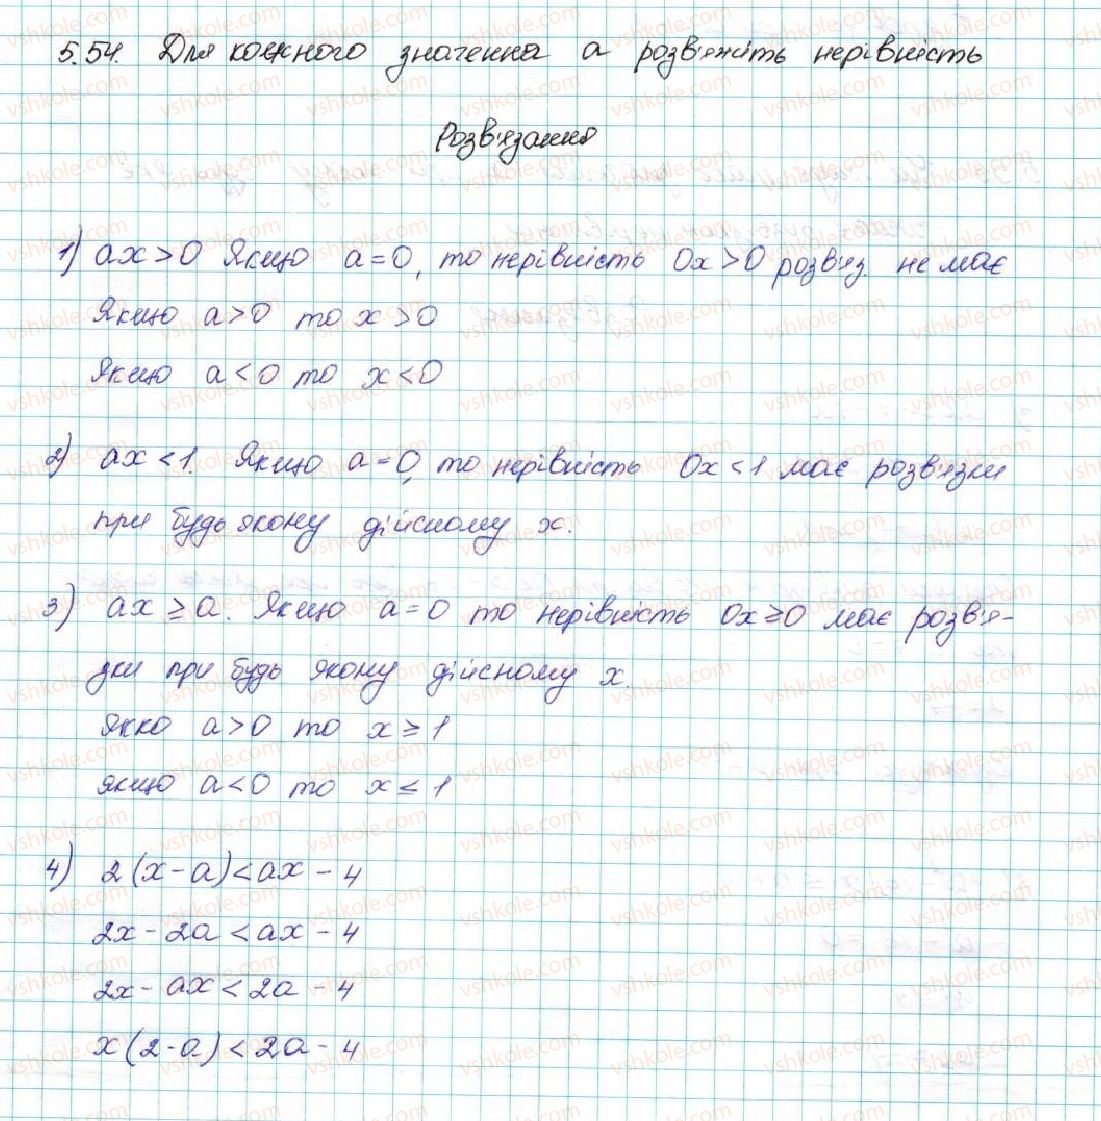 5.54. Для кожного значення а розв'яжіть нерівність
Розв'язання
1) ax > 0 Якщо a = 0, то нерівність 0x > 0 розв'яз. не має
Якщо a > 0 то x > 0
Якщо a < 0 то x < 0
2) ax < 1. Якщо a = 0, то нерівність 0x < 1 має розв'язки
при будь якому дійсному x.
3) ax ≥ a. Якщо a = 0 то нерівність 0x ≥ 0 має розв'я-
зки при будь якому дійсному x.
Якко a > 0 то x ≥ 1
якщо a < 0 то x ≤ 1
4) 2(x - a) < ax - 4
2x - 2a < ax - 4
2x - ax < 2a - 4
x(2-a) < 2a - 4